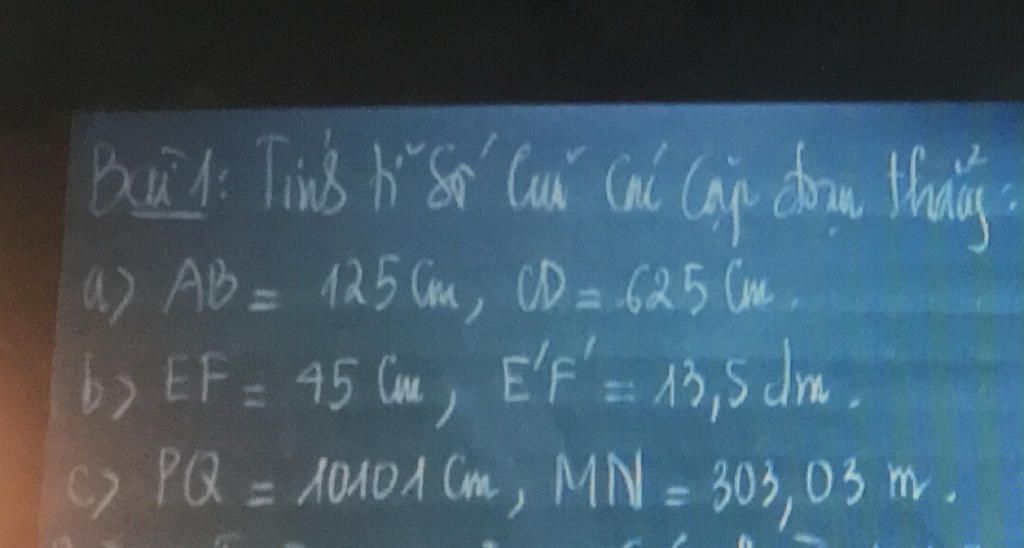 Bài 1: Tính tỉ số của các cặp đoạn thẳng:
a) AB = 125 Cm, CD = 625 Cm.
b) EF = 45 Cm, E'F' = 13,5 dm.
c) PQ = 10101 Cm, MN = 303,03 m.